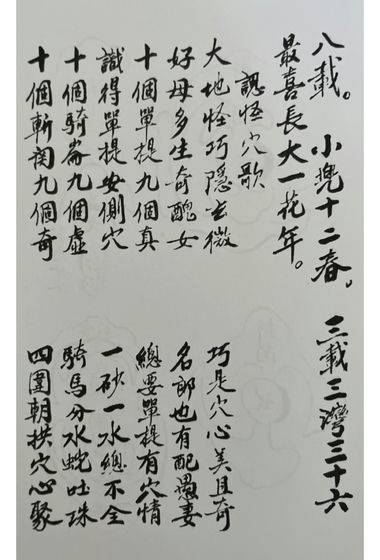 八載。小兜十二春。三載三灣三十六
最喜長大一花年。
認怪穴歌
大地怪巧隱玄微 巧是穴心美且奇
好母多生奇醜女 名郎也有配愚妻
十個單提九個真 總要單提有穴情
識得單提安側穴 一砂一水總不全
十個騎崙九個虛 騎馬分水蛇吐珠
十個斬関九個奇 四圍朝拱穴心聚